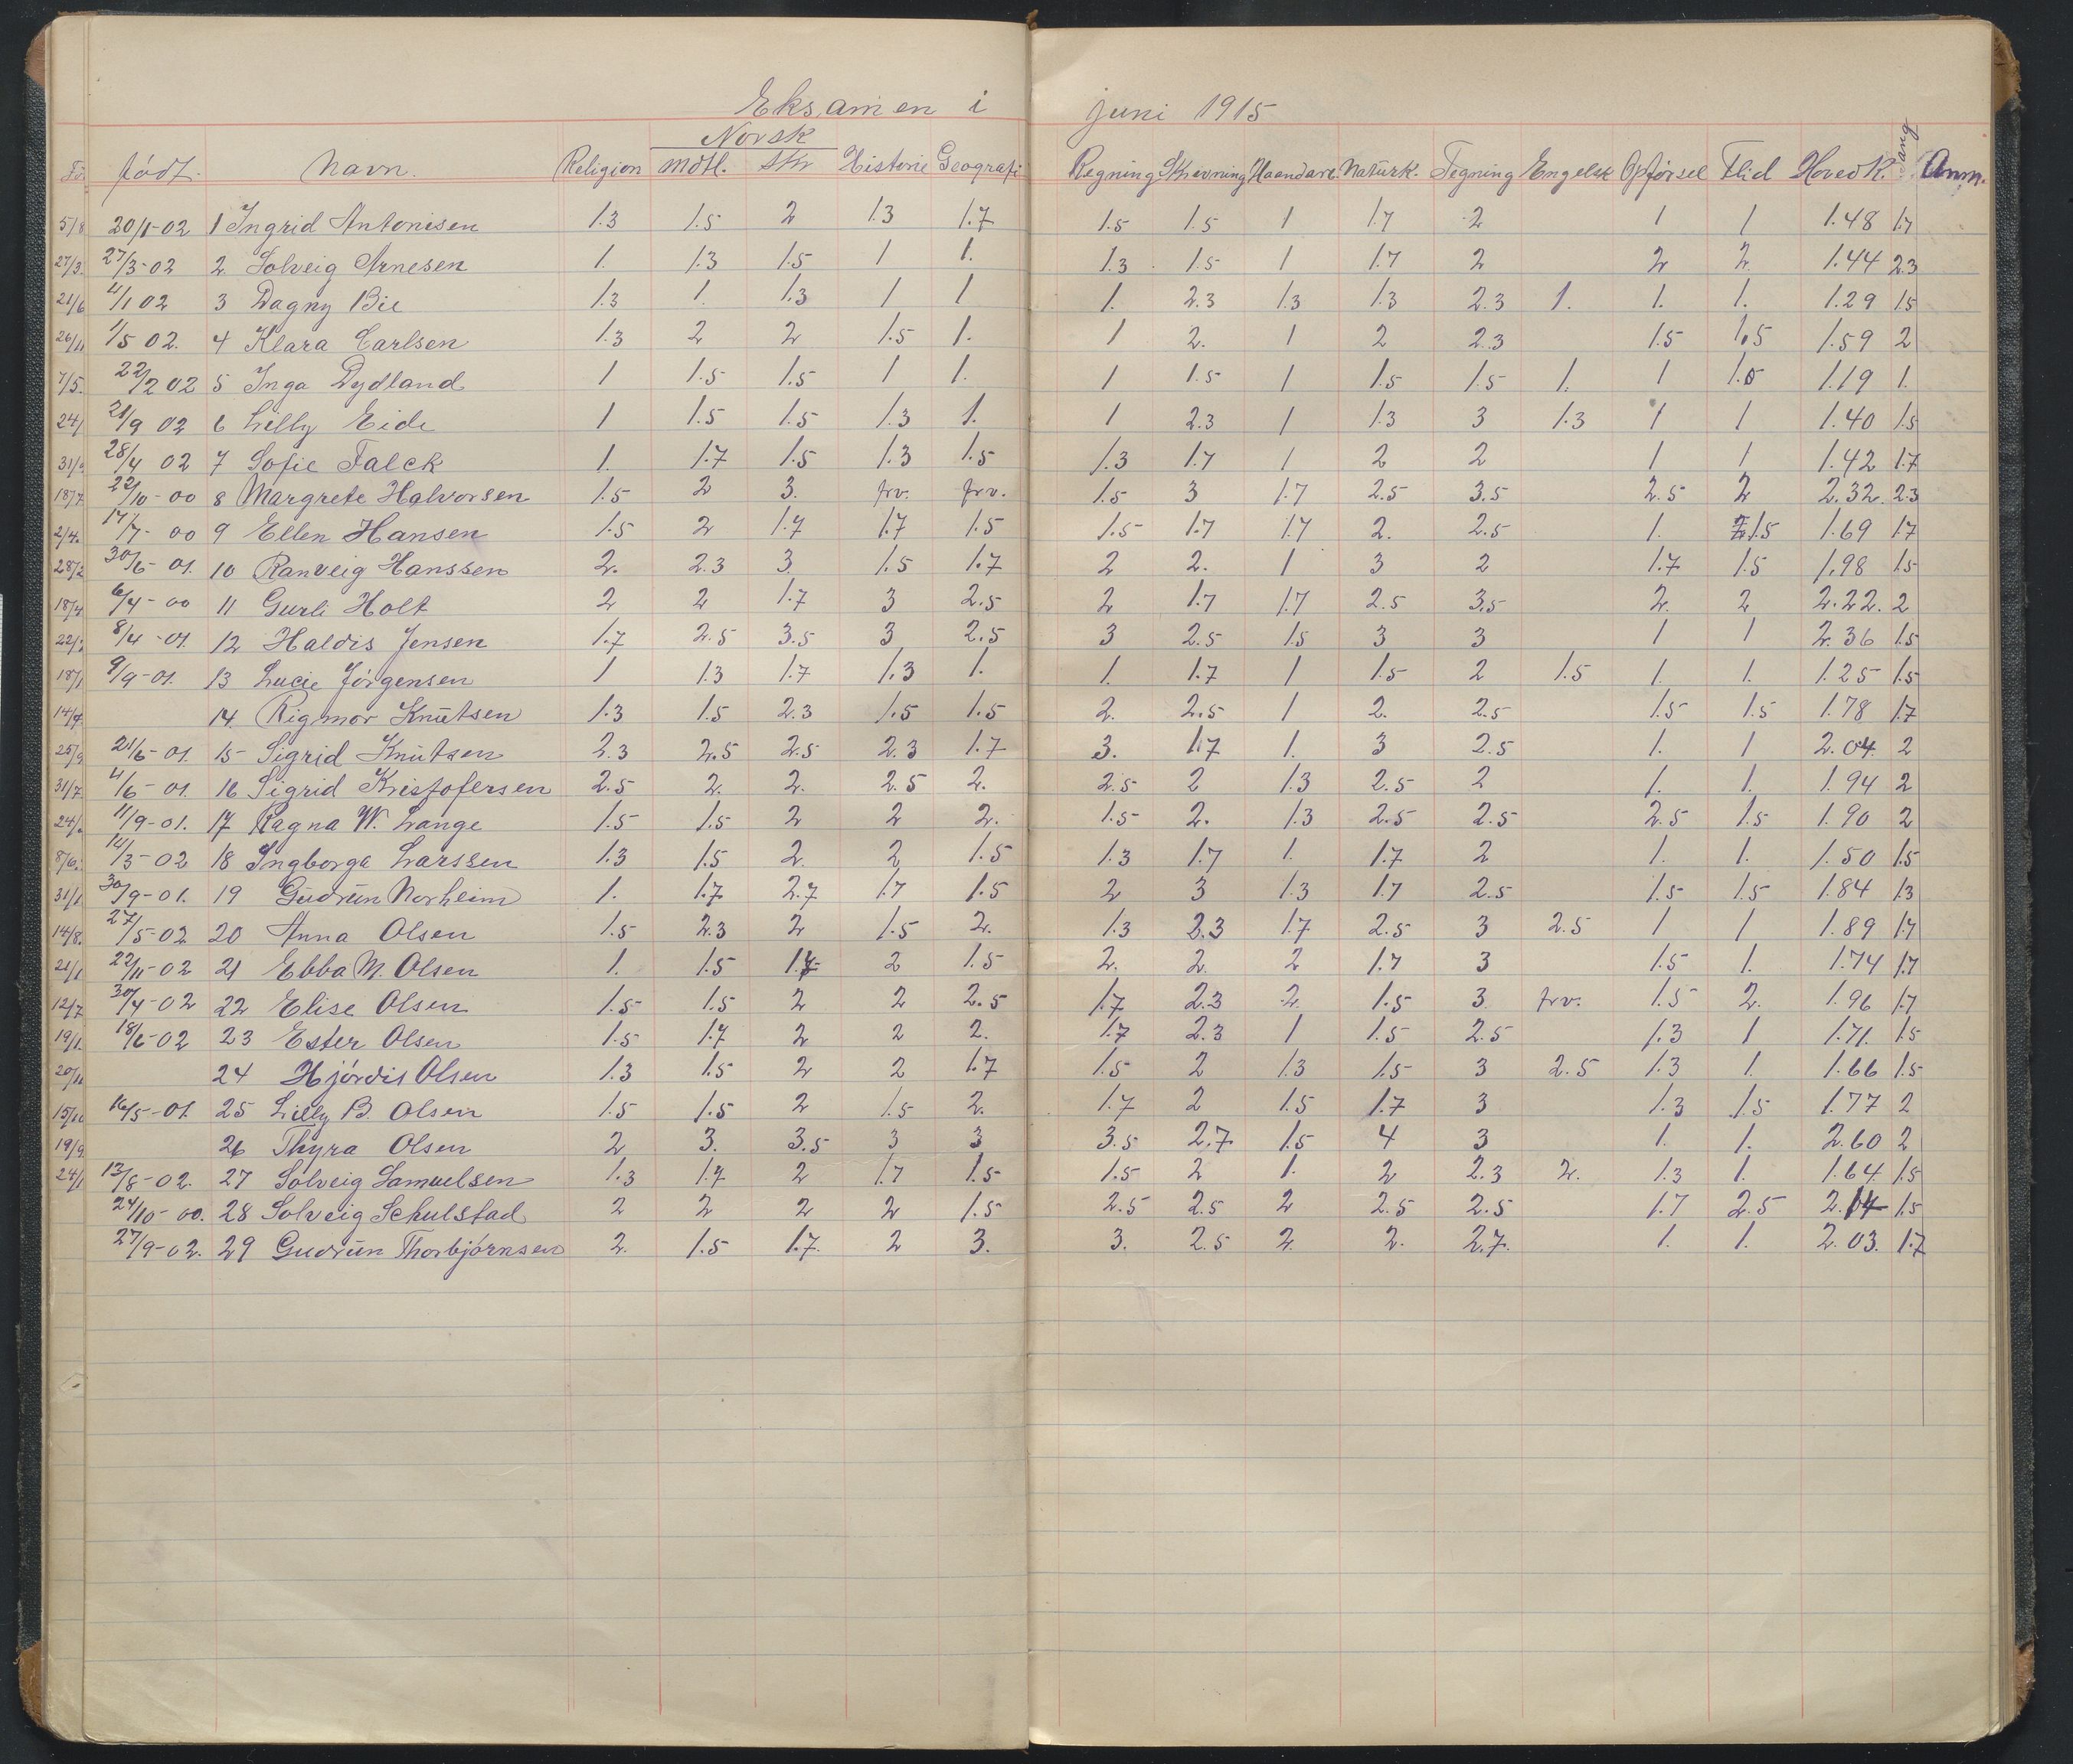 Eksamen i juni 1915
Norsk
født. Navn. Religion Mdtl. Skr Historie Geografi Regning Skrevning Haandarb. Naturk. Tegning Engelsk Opførsel Flid Hovedk. Sang Anm.
5/8 20/1-02 1 Ingrid Antonisen 1.3 1.5 2 1.3 1.7 1.5 1.5 1 1.7 2 1 1 1.48 1.7
27/3. 27/3-02 2 Solveig Arnesen 1. 1.3 1.5 1 1. 1.3 1.5 1 1.7 2 2 2. 1.44 2.3
21/6 4/1 02 3 Dagny Bie 1.3 1. 1.3 1 1 1. 2.3 1.3 1.3 2.3 1. 1. 1. 1.29 1.5
26/11 1/5 02. 4 Klara Carlsen 1.3 2 2 1.5 1. 1 2. 1 2 2.3 1.5 1.5 1.59 2
7/5. 22/2 02 5 Inga Dydland 1 1.5 1.5 1 1. 1 1.5 1 1.5 1.5 1. 1 1.5 1.19 1.
24/ 21/9 02 6 Lilly Eide 1 1.5 1.5 1.3 1. 1 2.3 1 1.3 3 1.3 1 1 1.40 1.5
31/ 28/4 02 7 Sofie Falck 1. 1.7 1.5 1.3 1.5 1.3 1.7 1 2 2 1 1 1.42 1.7
18/7 22/10-00 8 Margrete Halvorsen 1.5 2 3. frv. frv. 1.5 3 1.7 2.5 3.5 2.5 2 2.32 2.3
2/4. 17/7-00 9 Ellen Hansen 1.5 2 1.7 1.7 1.5 1.5 1.7 1.7 2. 2.5 1. 1.5 1.69 1.7
28/2 30/6-01. 10 Ranveig Hanssen 2. 2.3 3. 1.5 1.7 2 2. 1 3 2 1.7 1.5 1.98 1.5
18/4 6/4-00 11 Gurli Holt 2 2 1.7 3 2.5 2 1.7 1.7 2.5 3.5 2. 2 2.22. 2
22/ 8/4-01. 12 Haldis Jensen 1.7 2.5 3.5 3 2.5 3 2.5 1.5 3 3 1 1 2.36 1.5
18/1 9/9-01. 13 Lucie Jørgensen 1 1.3 1.7 1.3 1. 1. 1.7 1 1.5 2 1.5 1. 1. 1.25 1.5
14/4. 14. Rigmor Knutsen 1.3 1.5 2.3 1.5 1.5 2. 2.5 1 2. 2.5 1.5 1.5 1.78 1.7
25/9 21/6-01. 15 Sigrid Knutsen 2.3 2.5 2.5 2.3 1.7 3. 1.7 1. 3 2.5 1. 1 2.04 2
31/7. 4/6-01. 16 Sigrid Kristofersen 2.5 2. 2. 2.5 2. 2.5 2 1.3 2.5 2 1. 1. 1.94 2
24/ 11/9-01. 17 Ragna W. Lange 1.5 1.5 2 2 2. 1.5 2. 1.3 2.5 2.5 2.5 1.5 1.90 2
8/6. 14/3-02 18 Ingborga Larssen 1.3 1.5 2. 2 1.5 1.3 1.7 1. 1.7 2 1. 1. 1.50 1.5
31/1 30/9-01. 19 Gudrun Norheim 1. 1.7 2.7 1.7 1.5 2 3 1.3 1.7 2.5 1.5 1.5 1.84 1.3
14/8. 27/5-02 20 Anna Olsen 1.5 2.3 2 1.5 2. 1.3 2.3 1.7 2.5 3 2.5 1 1 1.89 1.7
21/1 22/11-02 21 Ebba M. Olsen 1. 1.5 1.7 2 1.5 2. 2. 2 1.7 3 1.5 1. 1.74 1.7
12/7 30/4-02 22 Elise Olsen 1.5 1.5 2 2 2.5 1.7 2.3 2. 1.5 3 frv. 1.5 2. 1.96 1.7
19/1. 18/6-02 23 Ester Olsen 1.5 1.7 2 2 2. 1.7 2.3 1 1.5 2.5 1.3 1 1.71. 1.5
20/11 24 Hjørdis Olsen 1.3 1.5 2 2 1.7 1.5 2 1.3 1.5 3 2.5 1.3 1. 1.66 1.5
15/10 16/5-01. 25 Lilly B. Olsen 1.5 1.5 2 1.5 2. 1.7 2 1.5 1.7 3 1.3 1.5 1.77 2
19/9. 26 Thyra Olsen 2 3. 3.5 3 3 3.5 2.7 1.5 4 3 1. 1. 2.60 2
24/1 13/8-02. 27 Solveig Samuelsen 1.3 1.7 2 1.7 1.5 1.5 2 1. 2 2.3 2. 1.3 1. 1.64. 1.5
24/10-00. 28 Solveig Schulstad 2 2 2 2 1.5 2.5 2.5 2 2.5 2.5 1.7 2.5 2.14 1.5
27/9-02. 29 Gudrun Thorbjørnsen 2. 1.5 1.7. 2 3. 3. 2.5 2. 2. 2.7. 1. 1. 2.03. 1.7